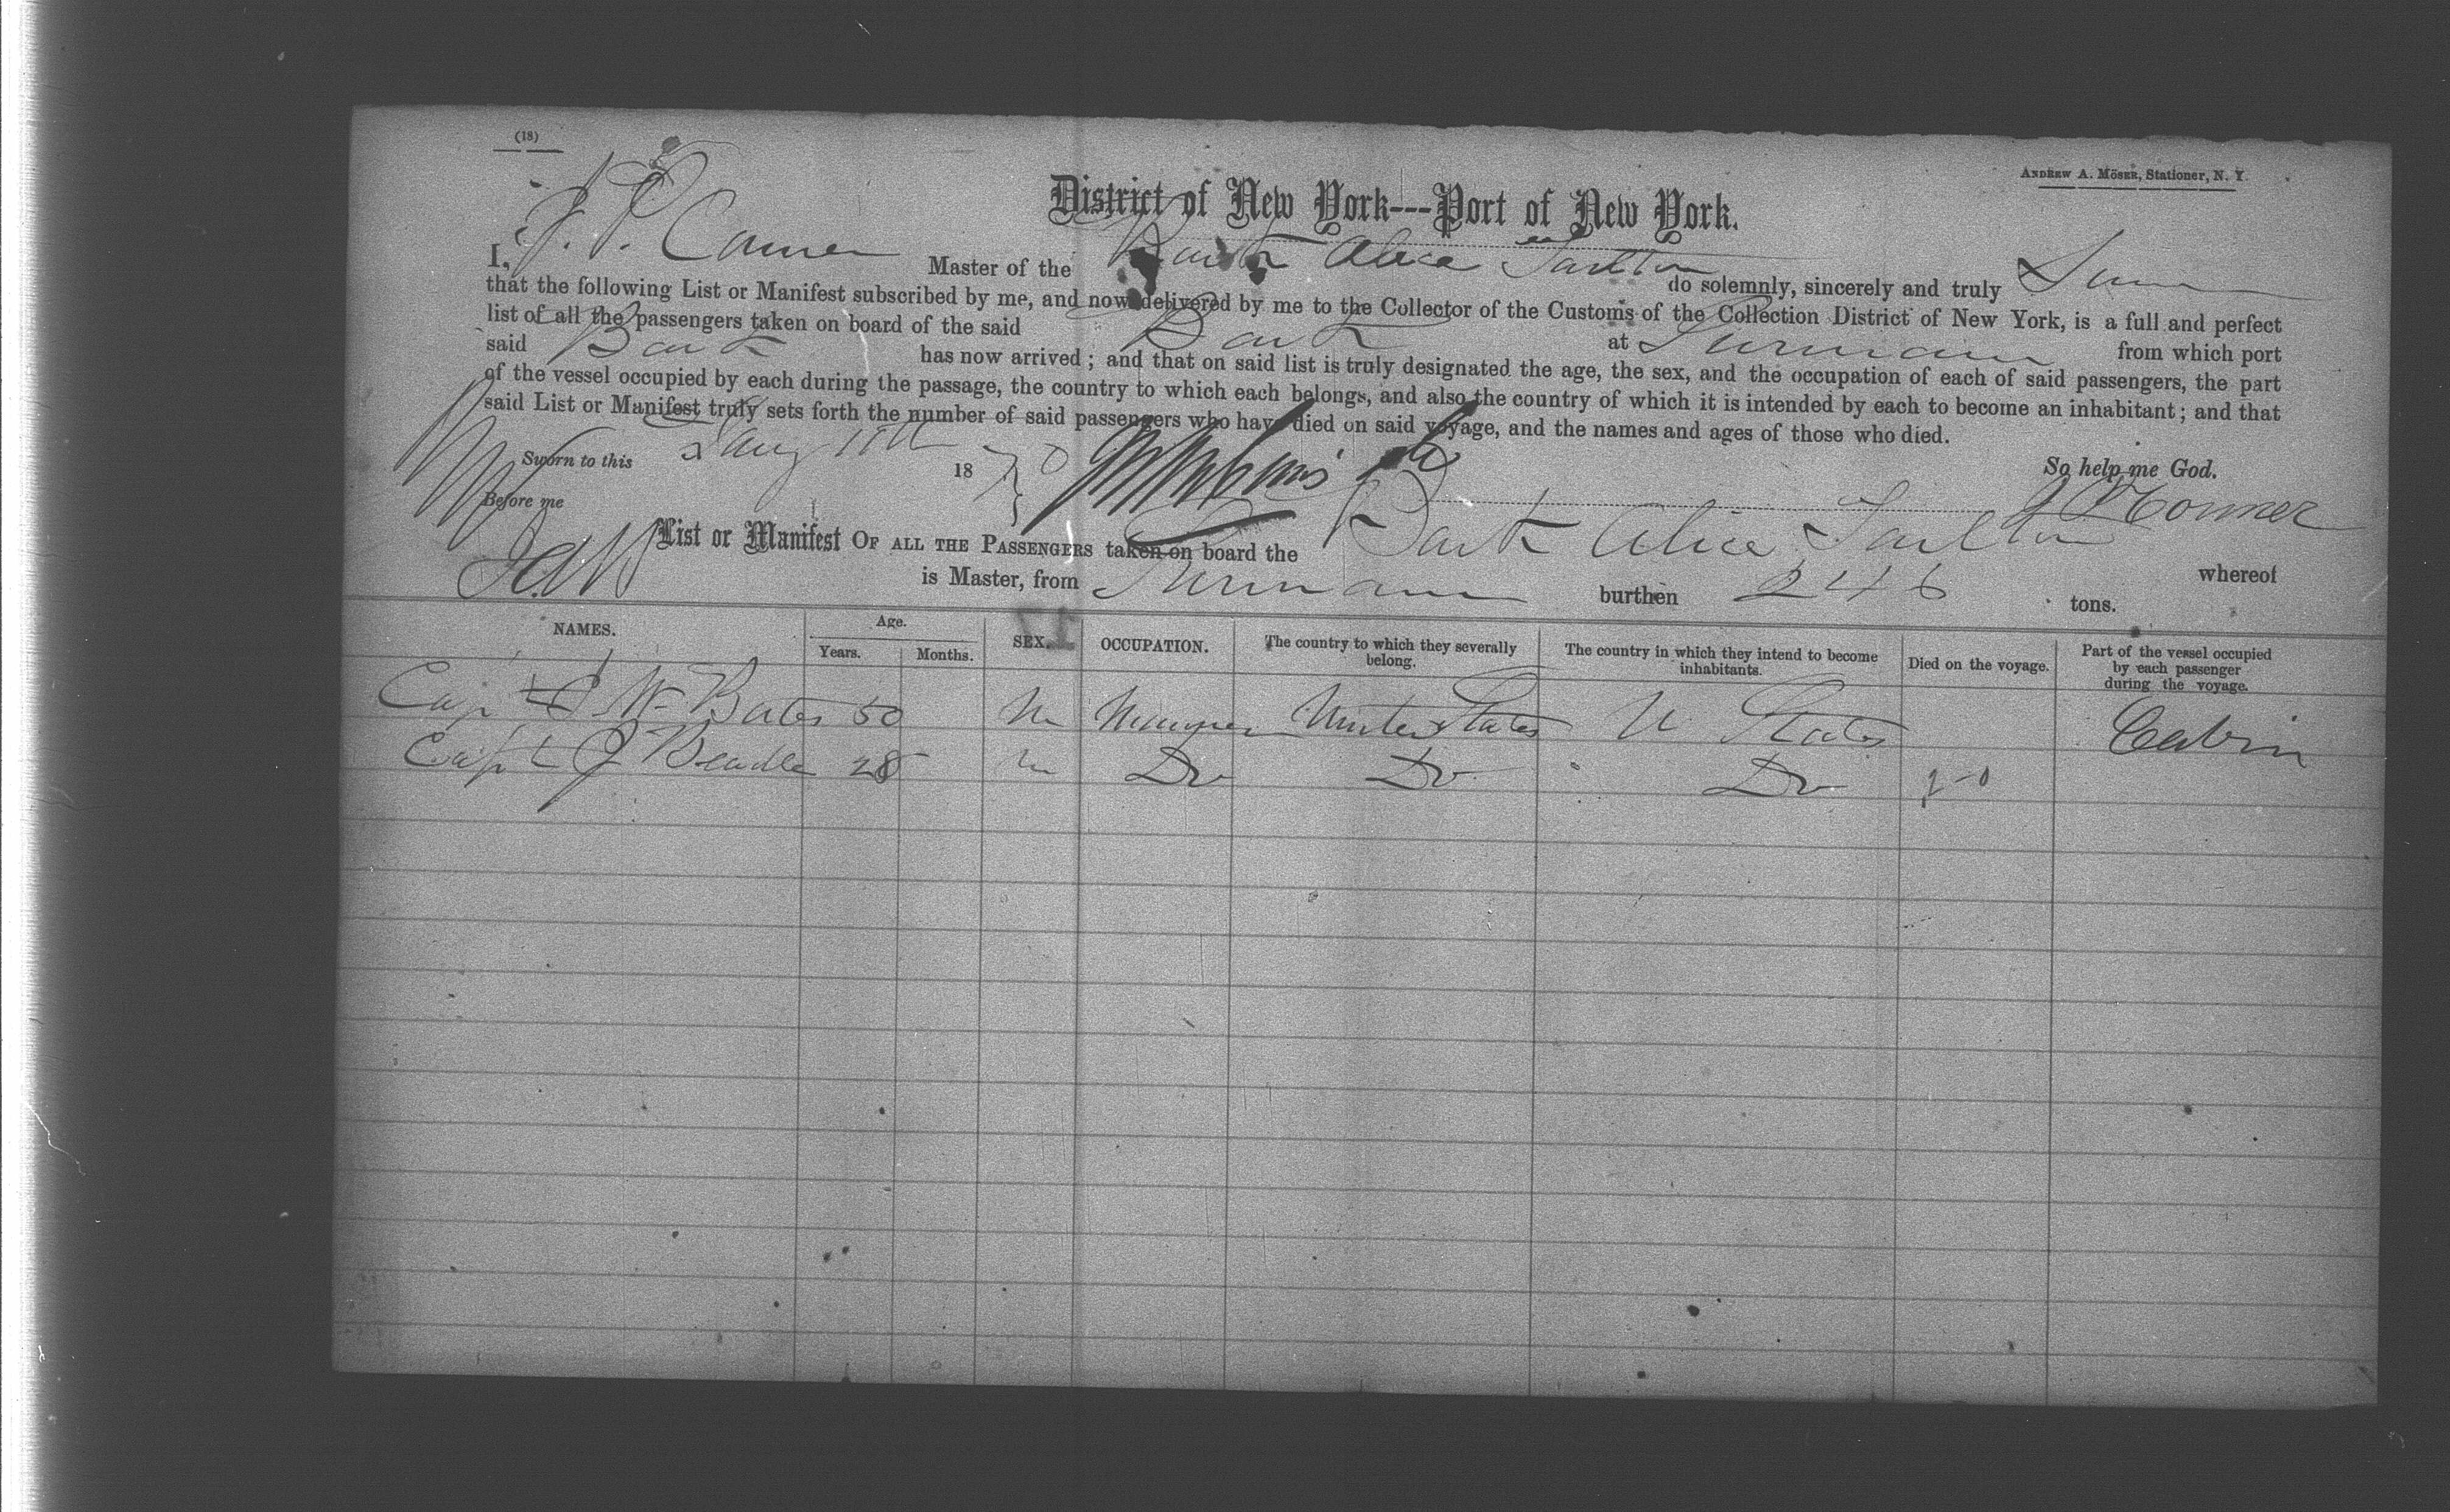 (18)
ANDREW A. MÖSER, Stationer, N. Y.
District of New York---Port of New York.
I, J. P. Conner Master of the Bark Alice Tarlton do solemnly, sincerely and truly Swear
that the following List or Manifest subscribed by me, and now delivered by me to the Collector of the Customs of the Collection District of New York, is a full and perfect
list of all the passengers taken on board of the said Bark at from which port
said Bark has now arrived; and that on said list is truly designated the age, the sex, and the occupation of each of said passengers, the part
of the vessel occupied by each during the passage, the country to which each belongs, and also the country of which it is intended by each to become an inhabitant; and that
said List or Manifest truly sets forth the number of said passengers who have died on said voyage, and the names and ages of those who died.
Sworn to this 18 70 So help me God.
Before me J P Conner
List or Manifest OF ALL THE PASSENGERS taken on board the Bark Alice Tarlton whereof
is Master, from burthen 246 tons.
17
NAMES. Age. Years. Months. SEX. OCCUPATION. The country to which they severally belong. The country in which they intend to become inhabitants. Died on the voyage. Part of the vessel occupied by each passenger during the voyage.
Capt W Bates 50 M United States U States Cabin
Capt J Beadle 28 M Do Do Do